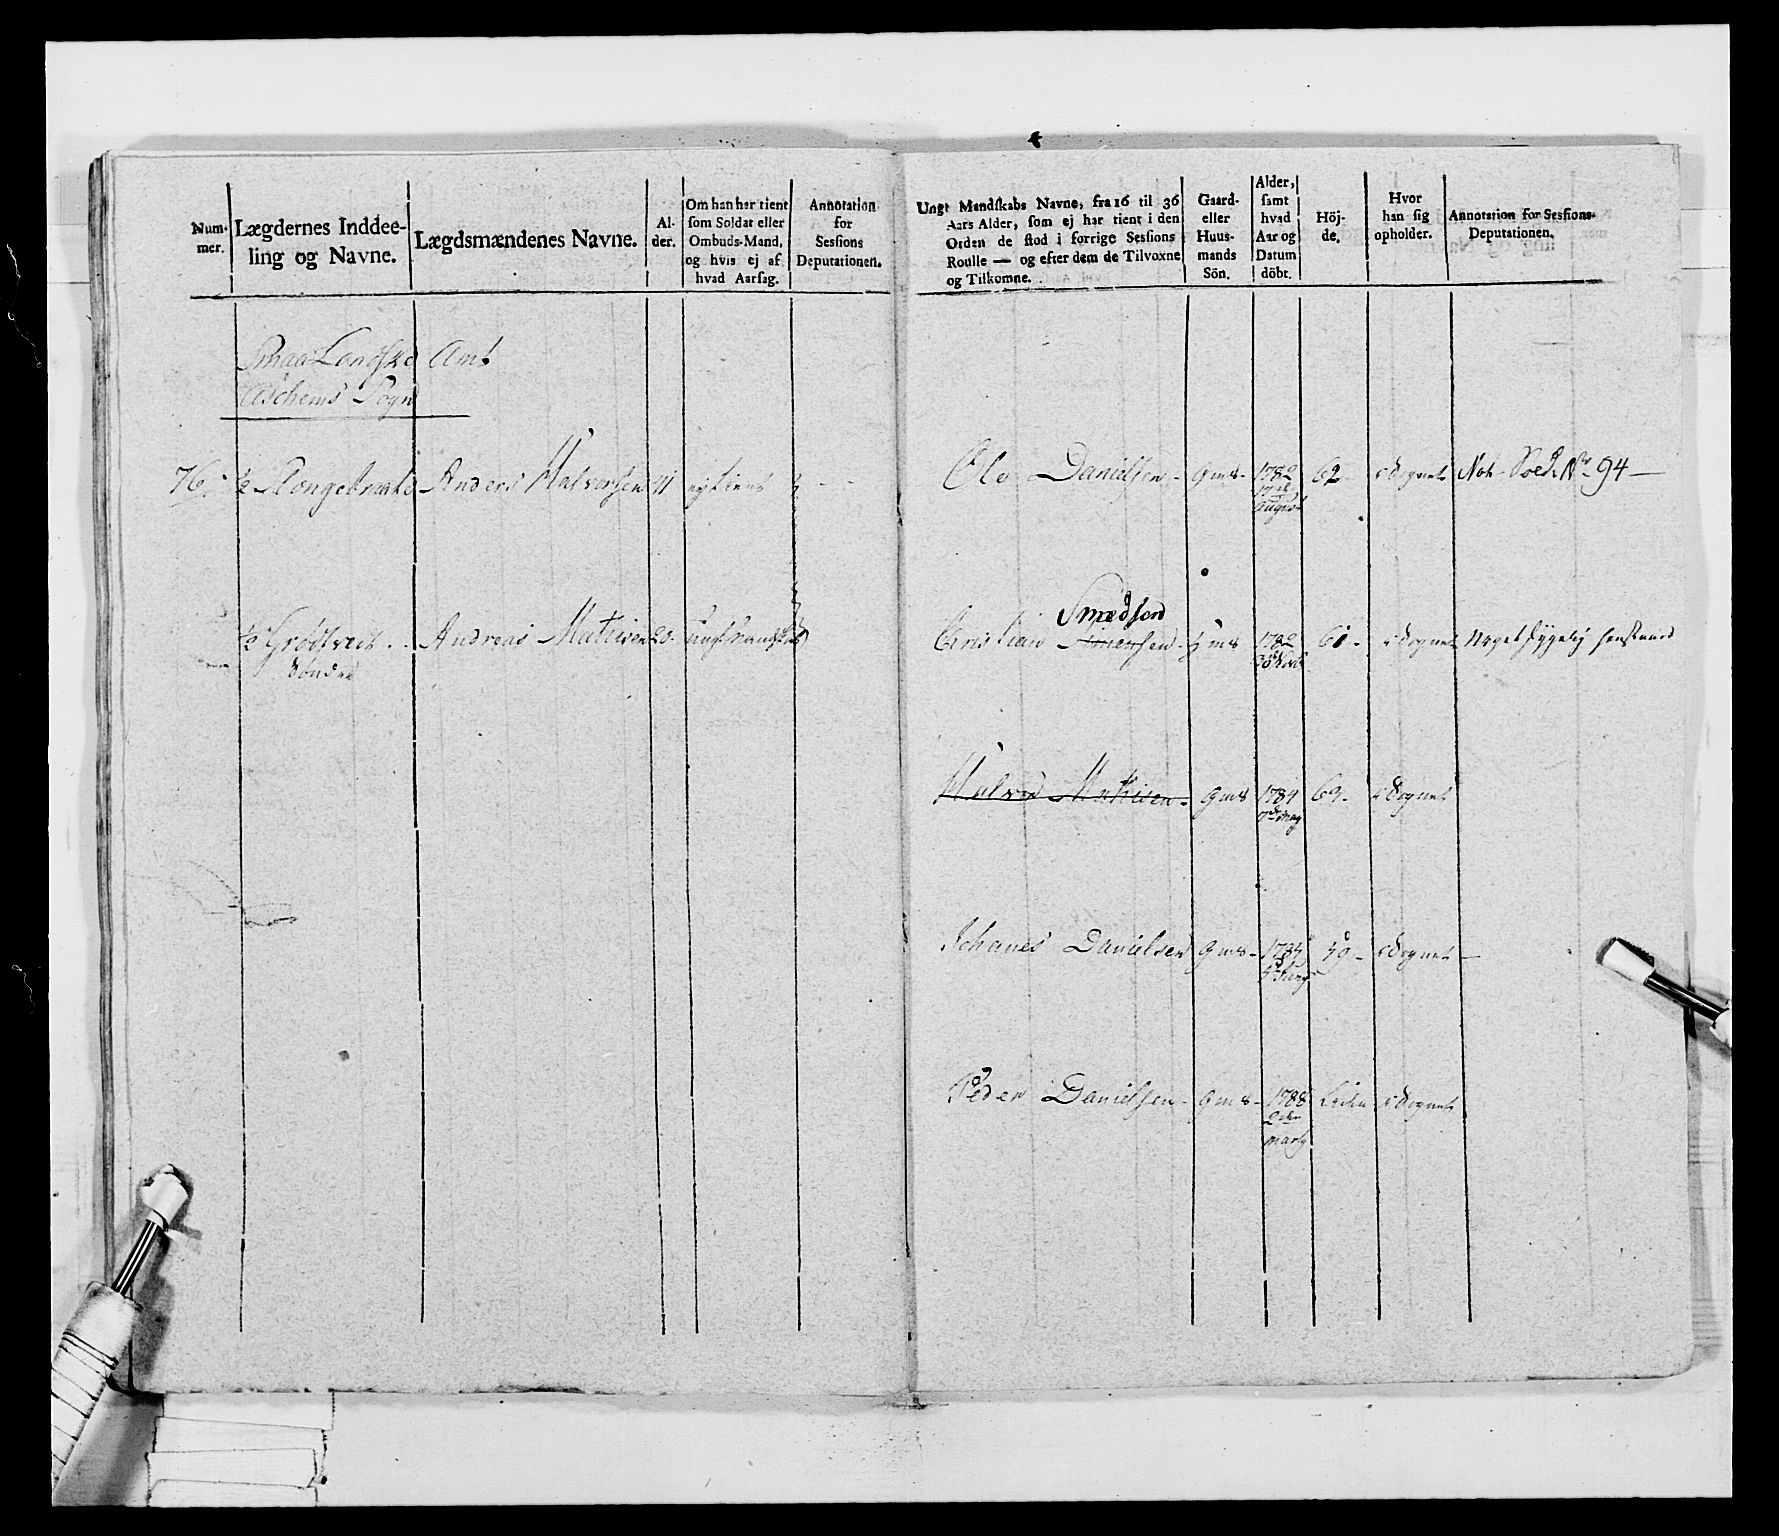 Num-
mer.
Lægdernes Inddee-
ling og Navne.
Lægdsmændenes Navne.
Al-
der.
Om han har tient
som Soldat eller
Ombuds-Mand,
og hvis ej af
hvad Aarsag.
Annotation
for
Sessions
Deputationen.
Ungt Mandskabs Navne, fra 16 til 36
Aars Alder, som ej har tient i den
Orden de stod i forrige Sessions
Roulle — og efter dem de Tilvoxne
og Tilkomne.
Gaard-
eller
Huus-
mands
Sön.
Alder,
samt
hvad
Aar og
Datum
döbt.
Höj-
de.
Hvor
han sig
opholder.
Annotation for Sessions-
Deputationen.
Amt
Sogn
76. ½ Anders Halvorsen 41 ej tient
Ole Danielsen - Gms - 1782 62 i Sognet Not. Soed. No 94 —
17de
August
Smedsen
½ Grødtveit Andreas Mathisen 20.
Sondre
Cristian ms 1782 61 - i Sognet Noget
Halvor Mathisen - Gms 1784 i Sognet
7de May
Johanes Danielsen Gms - 1784 i Sognet —
Peder Danielsen - Gms - 1788 Liden i Sognet
2den
Marty